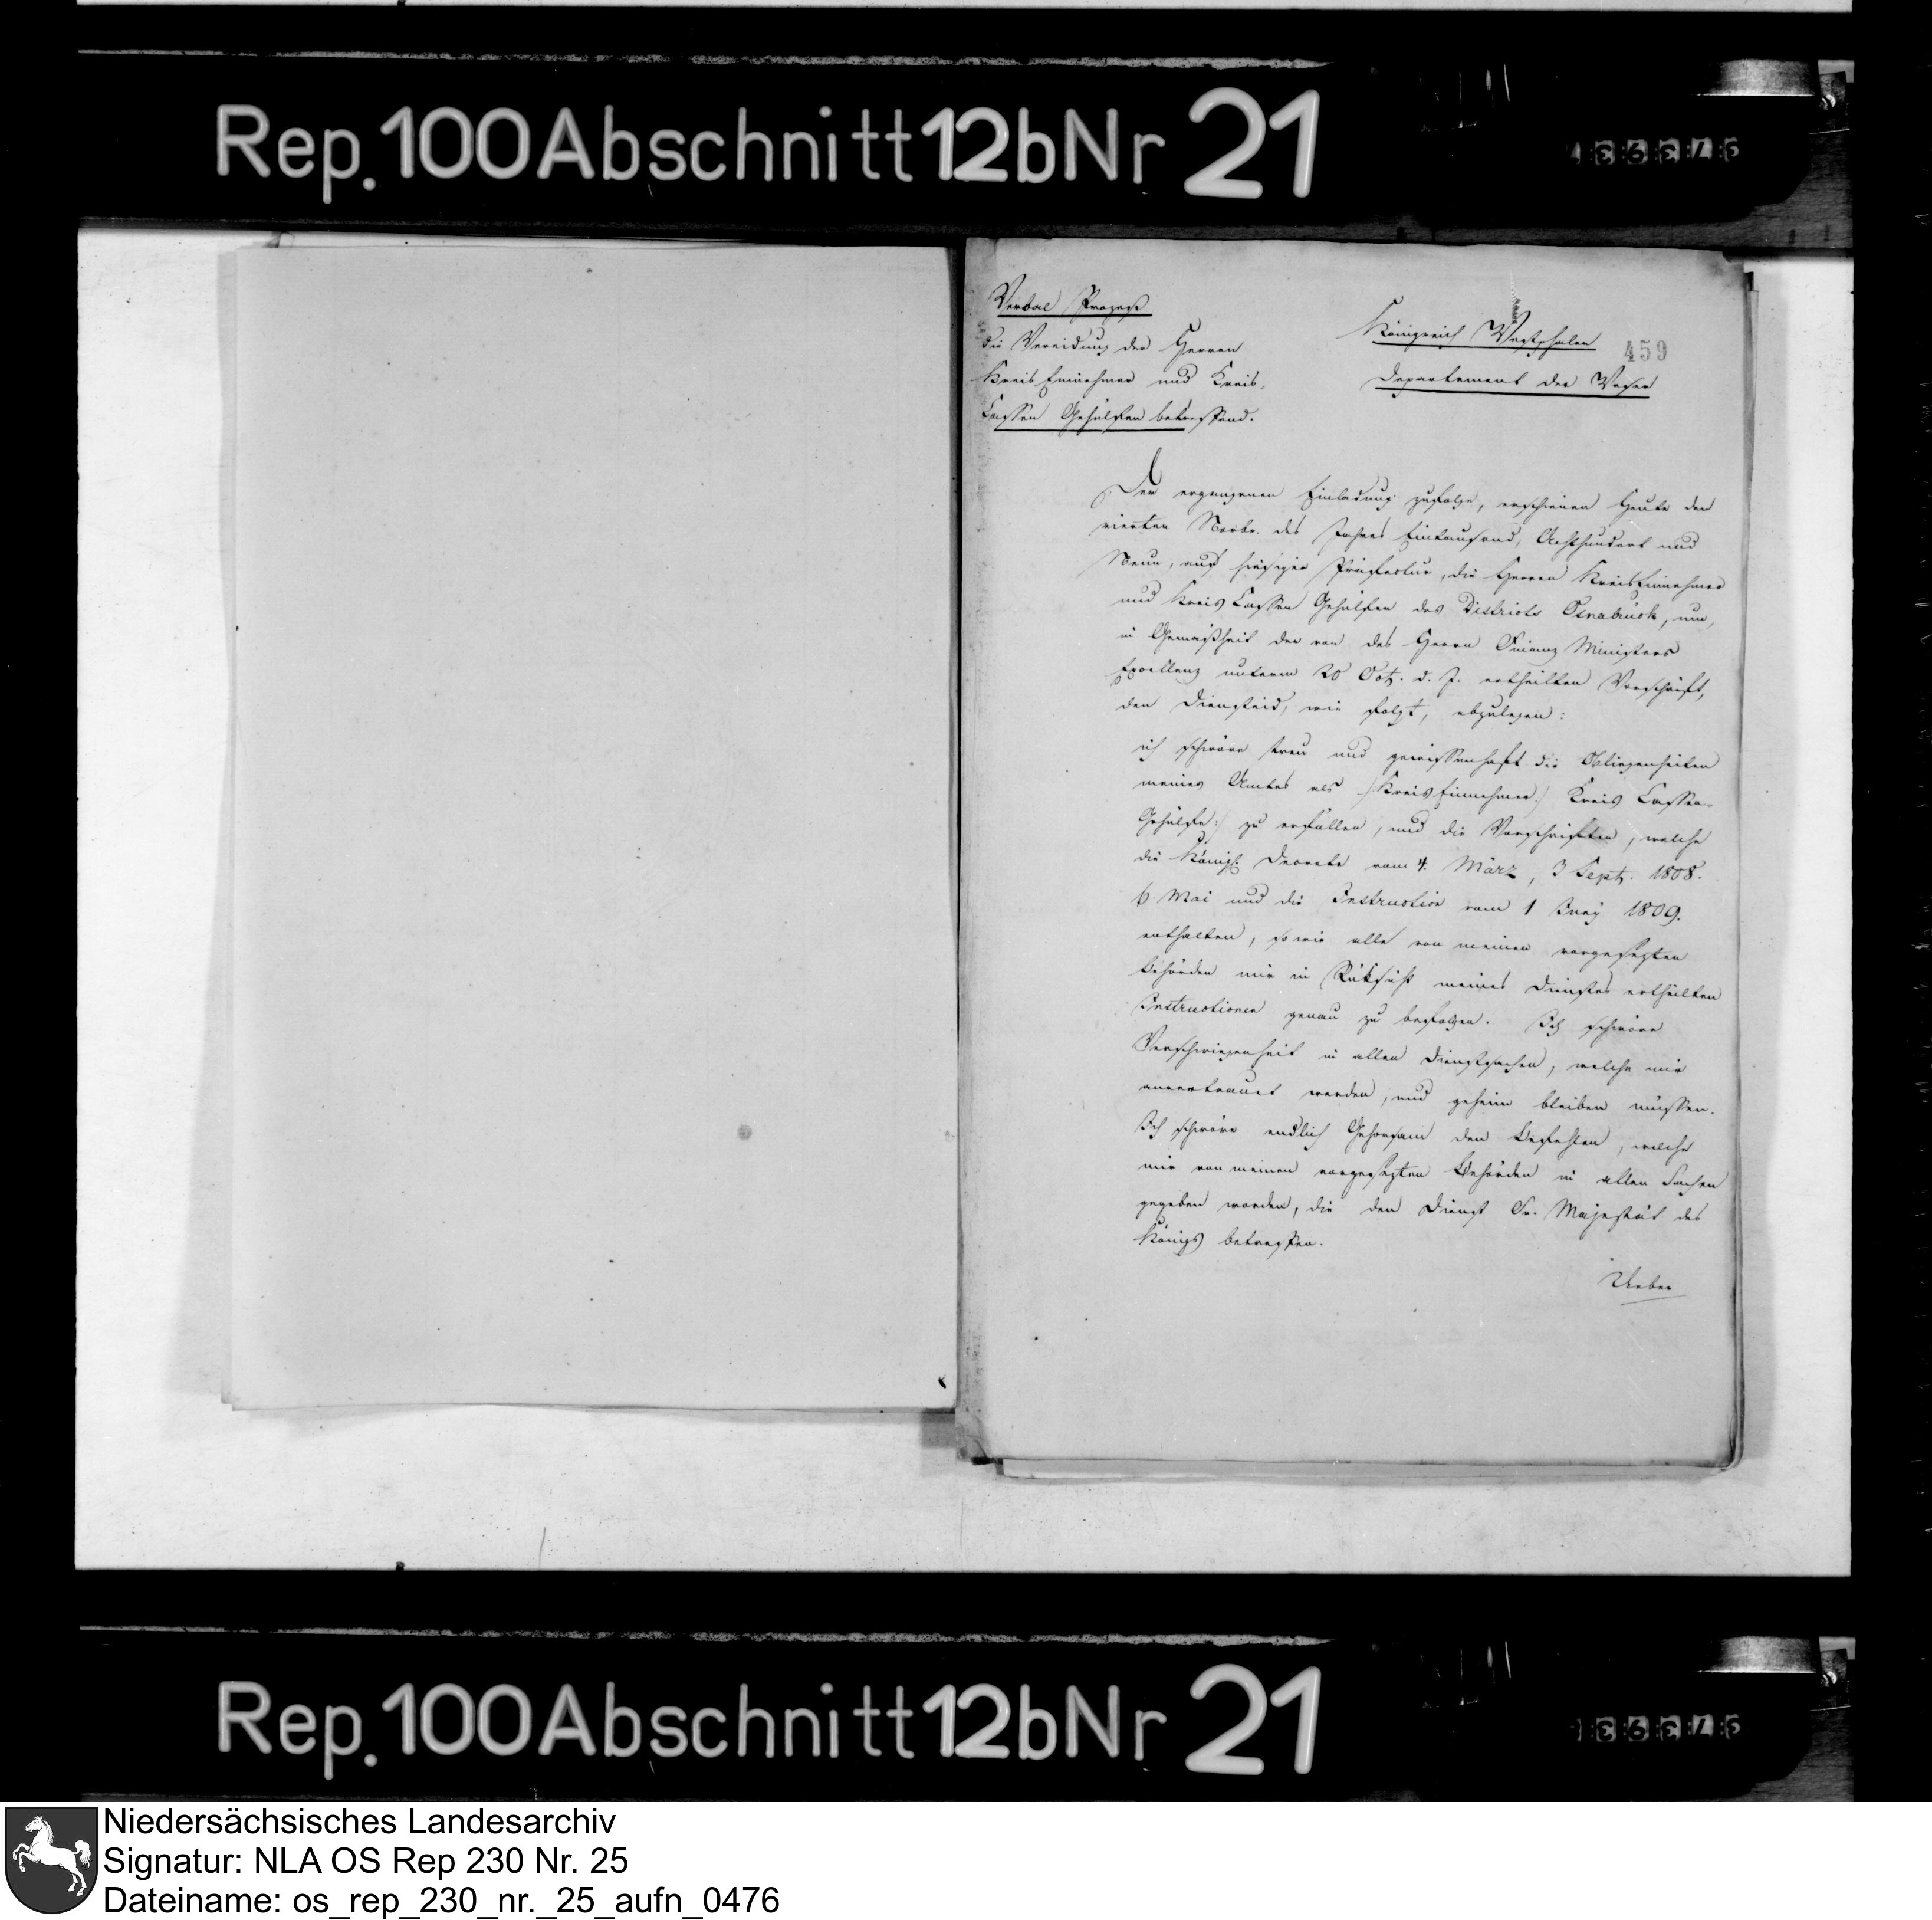 Rep. 100 Abschnitt 12b Nr 21
Verbal Prozeß
die Vereidung der Herren
Kreis Einnehmer und Kreis,
Cassen Gehülfen betreffend.
Königreich Westphalen
459
Departement der Weser
Der ergangenen Einladung zufolge, erschienen Heute den
vierten Novbr. des Jahres Eintausend, Achthundert und
Neun, auf hiesiger Präfectur, die Herren Kreis Einnehmer
und Kreis Cassen Gehülfen des Districts Osnabrück, um,
in Gemäßheit der von des Herrn Finanz Ministers
Excellenz unterm 20 Oct. d. J. ertheilten Vorschrift,
den Diensteid, wie folgt, abzulegen:
ich schwöre treu und gewissenhaft die Obliegenheiten
meines Amtes als /:Kreis Einnehmer:/ Kreis Cassen-
Gehülfe:/ zu erfüllen, und die Vorschriften, welche
die Königl. Decrete vom 4. März, 3 Sept. 1808.
6 Mai und die Instruction vom 1 Juny 1809.
enthalten, so wie alle von meinen vorgesezten
Behörden mir in Rüksicht meines Dienstes ertheilten
Instructionen genau zu befolgen. Ich schwöre
Verschwiegenheit in allen Dienstsachen, welche mir
anvertrauet werden, und geheim bleiben müssen.
Ich schwöre endlich Gehorsam den Befehlen, welche
mir von meinen vorgesezten Behörden in allen Sachen
gegeben werden, die den Dienst Sr. Majestät des
Königs betreffen.
Ueber
Rep. 100 Abschnitt 12b Nr 21
Niedersächsisches Landesarchiv
Signatur: NLA OS Rep 230 Nr. 25
Dateiname: os_rep_230_nr._25_aufn_0476